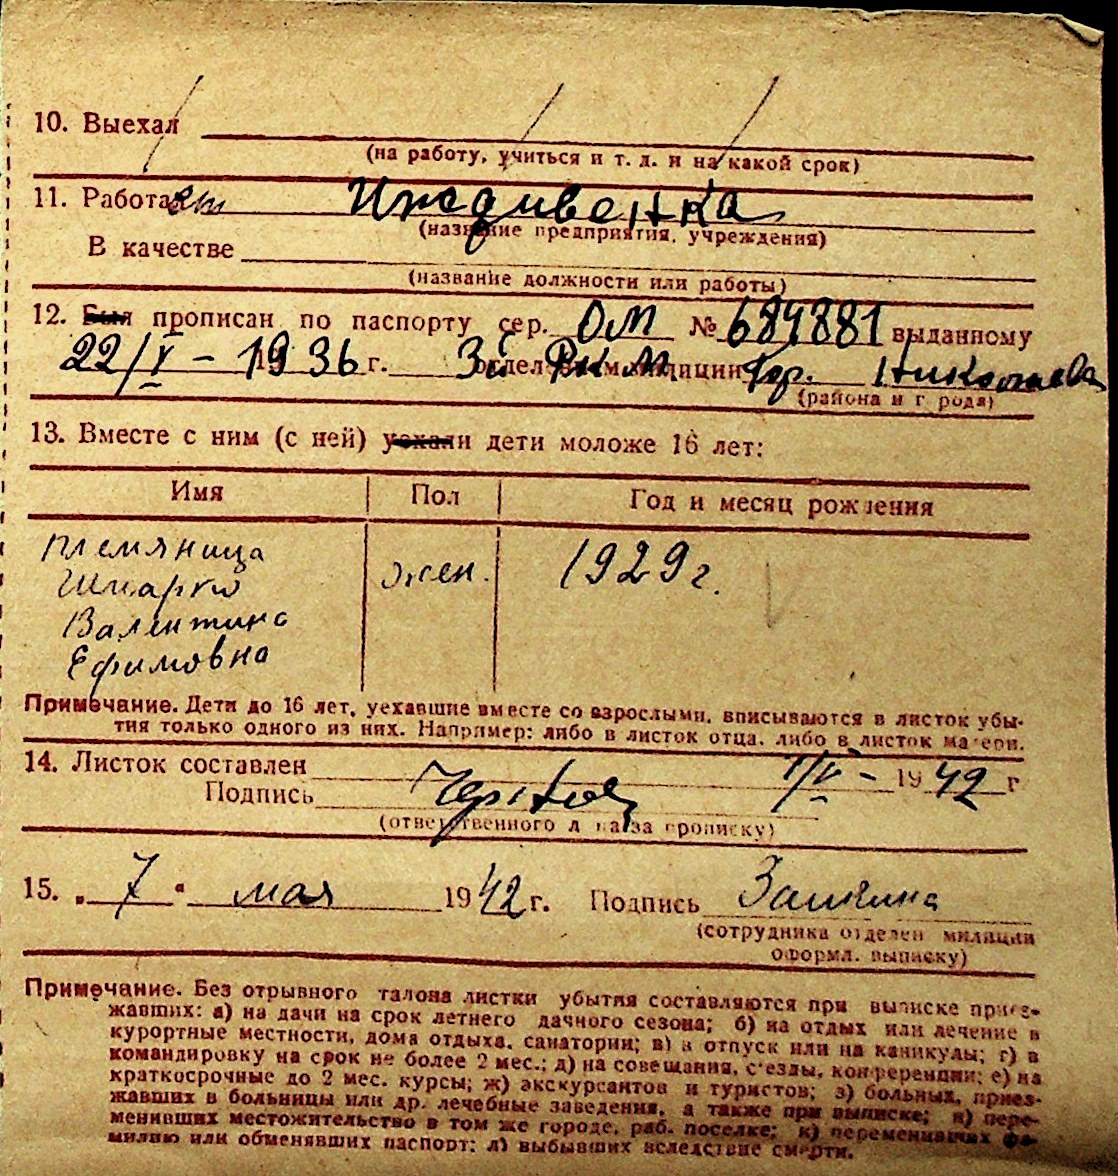 10. Выехал
(на работу, учиться и т. д. и на какой срок)
11. Работает Иждивенка
(название предприятия, учреждения)
В качестве
(название должности или работы)
12. Был прописан по паспорту сер. ОМ № 684881 выданному
22/V – 1936 г. 3й отделением милиции РКМ гор. Николаева
(района и города)
13. Вместе с ним (с ней) уехали дети моложе 16 лет:
Имя Пол Год и месяц рождения
племяница жен. 1929 г.
Шпарко
Валентина
Ефимовна
Примечание. Дети до 16 лет, уехавшие вместе со взрослыми, вписываются в листок убы-
тия только одного из них. Например: либо в листок отца, либо в листок матери.
14. Листок составлен 1/V – 1942 г
Подпись
(ответственного лица за прописку)
15. „ 7 " мая 1942 г. Подпись
(сотрудника отделен милиции
оформл. выписку)
Примечание. Без отрывного талона листки убытия составляются при выписке приез-
жавших: а) на дачи на срок летнего дачного сезона; б) на отдых или лечение в
курортные местности, дома отдыха, санатории; в) в отпуск или на каникулы; г) в
командировку на срок не более 2 мес.; д) на совещания, с'езды, конференции; е) на
краткосрочные до 2 мес. курсы; ж) экскурсантов и туристов; з) больных, приез-
жавших в больницы или др. лечебные заведения, а также при выписке; и) пере-
менивших местожительство в том же городе, раб. поселке; к) переменивших фа-
милию или обменявших паспорт; л) выбывших вследствие смерти.